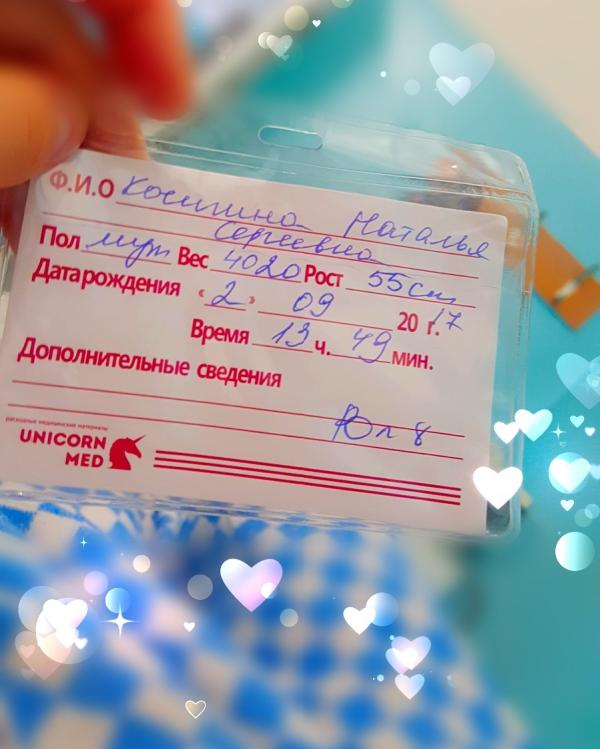 Ф.И.О Косицина Наталья
Сергеевна
Пол муж Вес 4020 Рост 55 см
Дата рождения «2» 09 2017 г.
Время 13 ч. 49 мин.
Дополнительные сведения
расходные медицинские материалы
UNICORN
MED